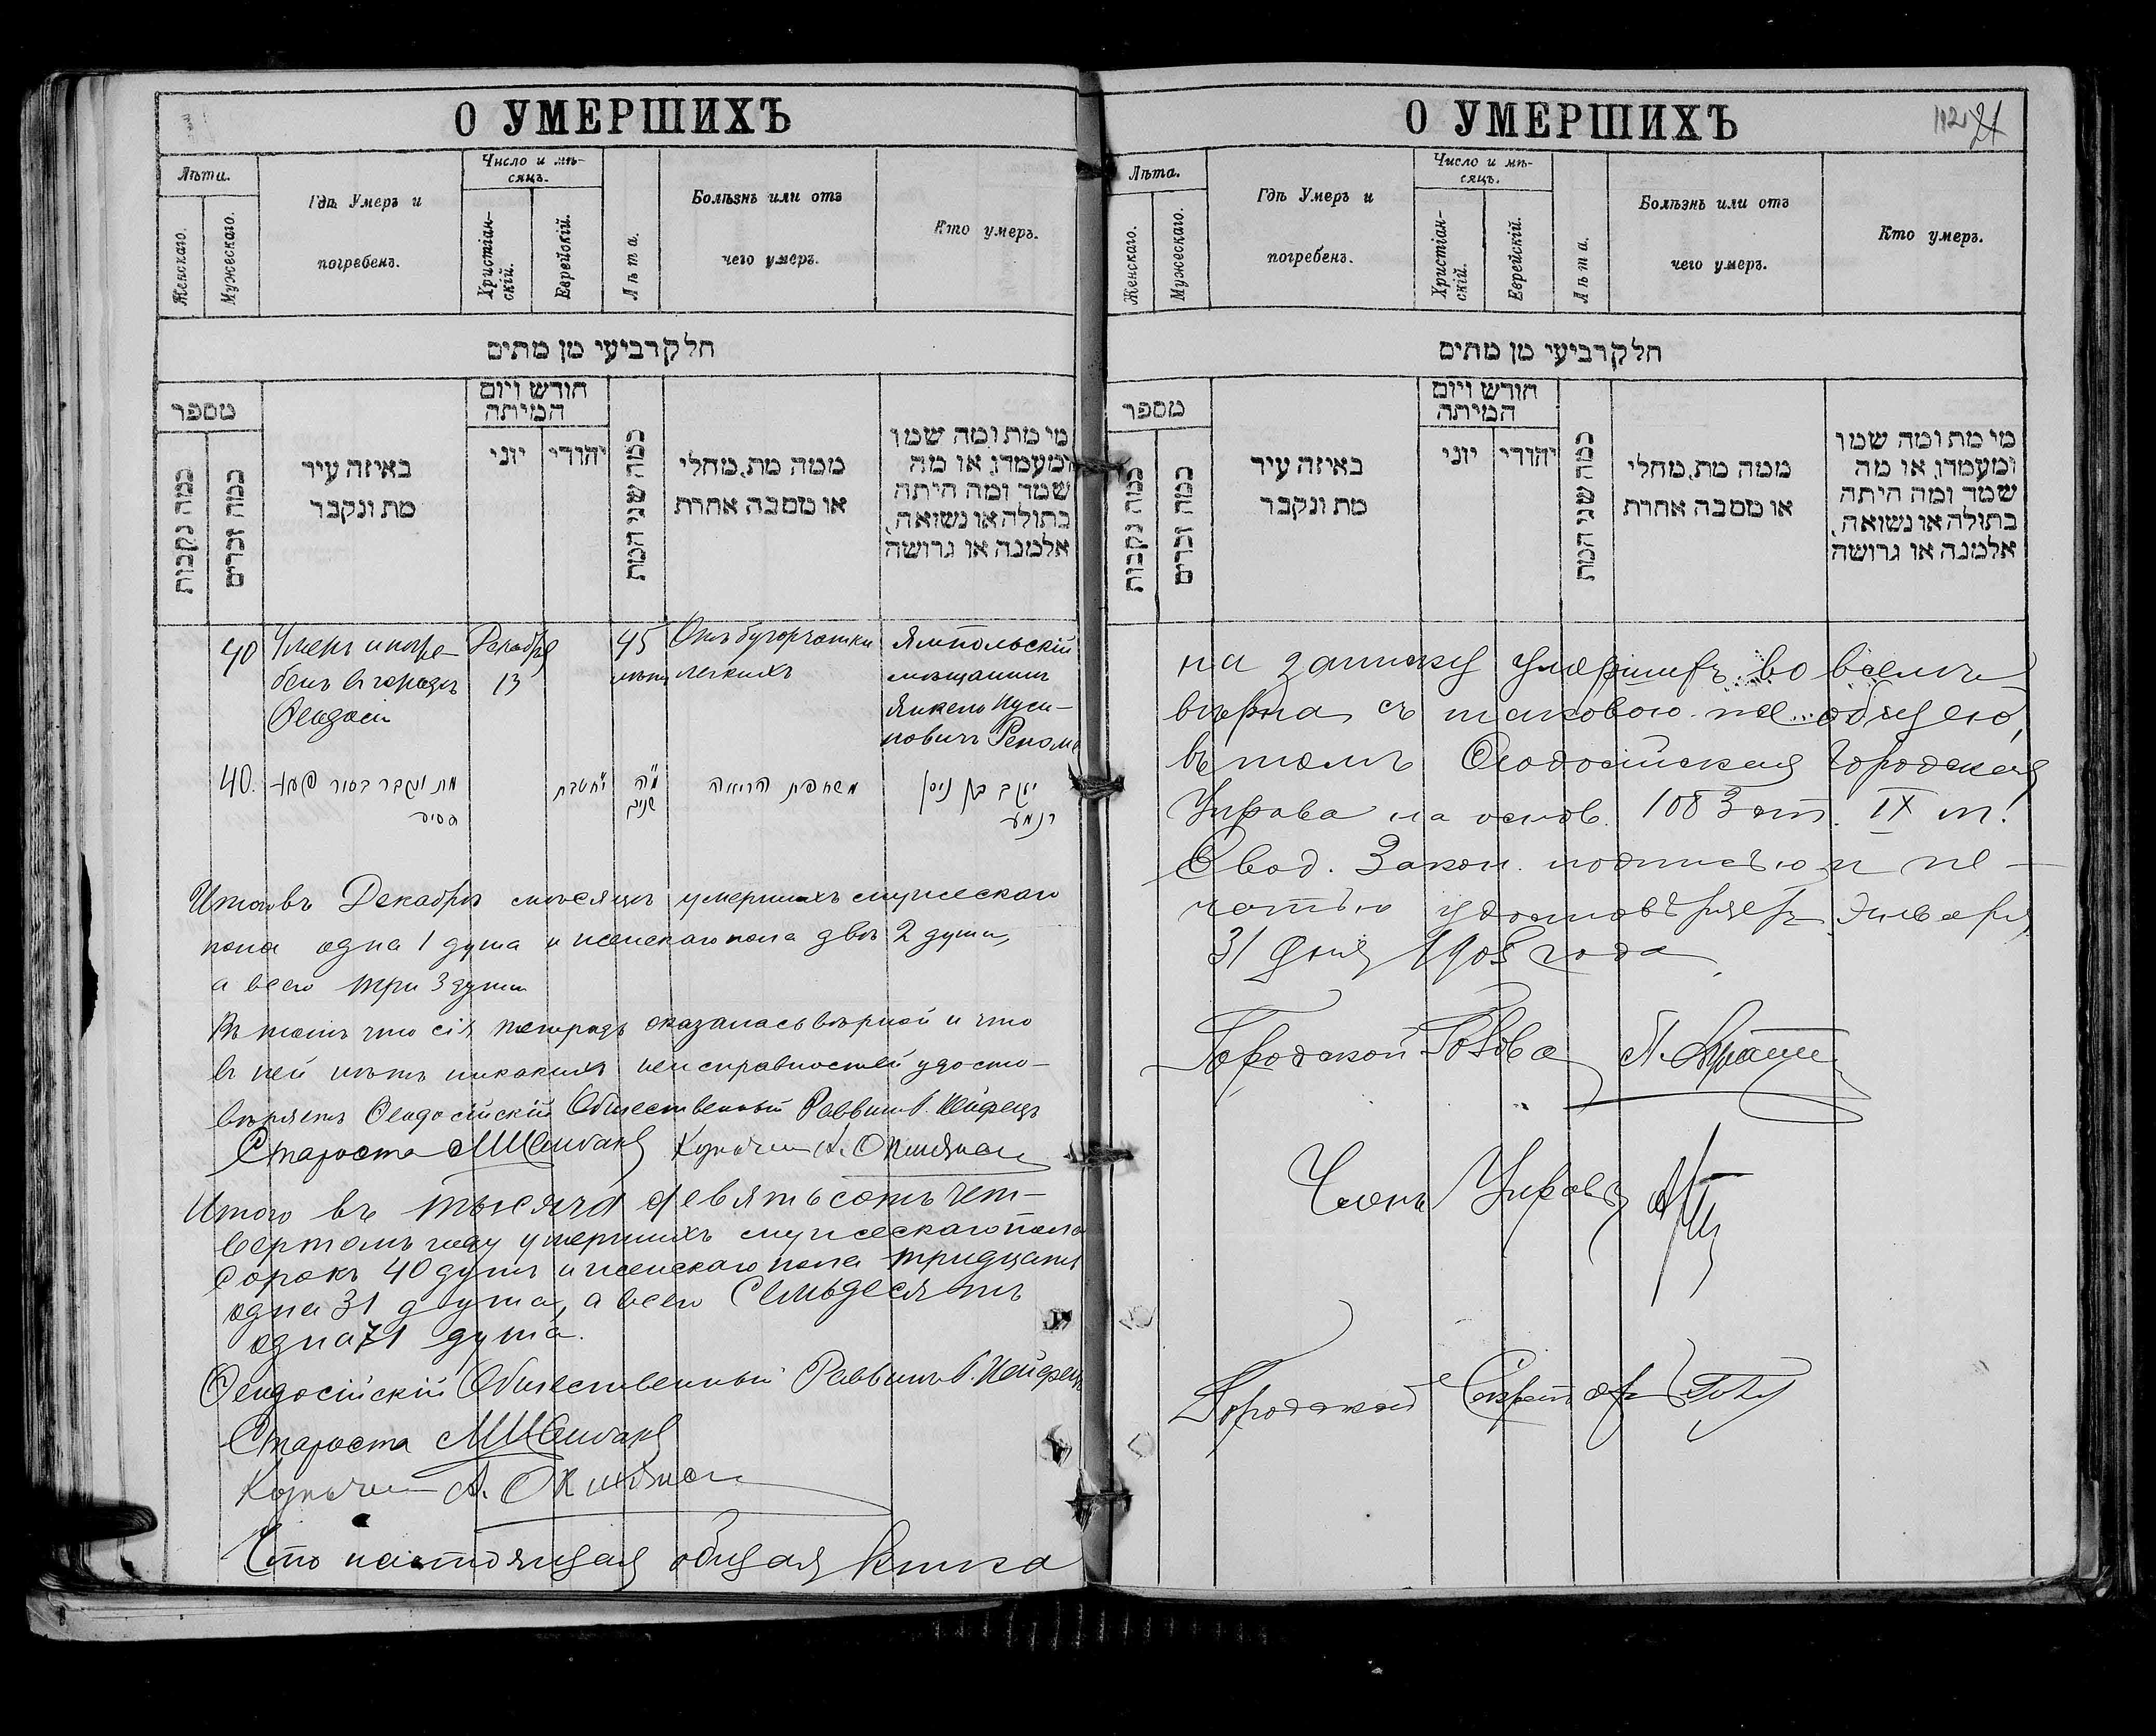 О УМЕРШИХЪ
Лѣта.
Женскаго.
Мужескаго.
Гдѣ Умеръ и
погребенъ.
Число и мѣ-
сяцъ.
Христіан-
скій.
Еврейскій.
Лѣта.
Болѣзнь или отъ
чего умеръ.
Кто умеръ.
חלק רביעי מן מתים
מספר
כמה נקבות
כמה זכרים
באיזה עיר
מת ונקבר
חודש ויום
המיתה
יוני
יהודי
כמה שני המת
ממה מת, מחלי
או מסבה אחרת
מי מת ומה שמו
ומעמדו, או מה
שמד ומה היתה
בתולה או נשואה,
אלמנה או גרושה
40
Умеръ и погре-
бенъ въ городѣ
Ѳеодосіи
Декабря
13
45
лѣтъ
Отъ бугорчатки
легкихъ
Ямпольскій
мѣщанинъ
Янкель Нуси-
новичъ
40.
מת ונקבר בעיר
י״ח טבת
מ״ה
שנים
משחפת הריאה
יעקב בן ניסן
Итого въ Декабрѣ мѣсяцѣ умершихъ мужескаго
пола одна 1 душа и женскаго пола двѣ 2 души,
а всего три 3 души
Въ томъ что сія тетрадь оказалась вѣрной и что
въ ней нѣтъ никакихъ неисправностей удосто-
вѣряетъ Ѳеодосійскій Общественный Раввинъ
Староста
Казначей А.
Итого въ тысяча девятьсотъ чет-
вертомъ году умершихъ мужескаго пола
сорокъ 40 душъ и женскаго пола тридцать
одна 31 душа, а всего семьдесятъ
одна 71 душа.
Ѳеодосійскій Общественный Раввинъ
Староста
Казначей А.
Что настоящая общая книга
О УМЕРШИХЪ
21
Лѣта.
Женскаго.
Мужескаго.
Гдѣ Умеръ и
погребенъ.
Число и мѣ-
сяцъ.
Христіан-
скій.
Еврейскій.
Лѣта.
Болѣзнь или отъ
чего умеръ.
Кто умеръ.
חלק רביעי מן מתים
מספר
כמה נקבות
כמה זכרים
באיזה עיר
מת ונקבר
חודש ויום
המיתה
יוני
יהודי
כמה שני המת
ממה מת, מחלי
או מסבה אחרת
מי מת ומה שמו
ומעמדו, או מה
שמד ומה היתה
בתולה או נשואה,
אלמנה או גרושה
на записку умершихъ во всемъ
вѣрна съ таковою же общею,
въ томъ Ѳеодосійская Городская
Управа на основ. 1083 ст. IX т.
Свод. Закон. подписью и пе-
чатью удостовѣряетъ Января
31 дня 1905 года
Городской Голова
Членъ Управы
Городской Секретарь